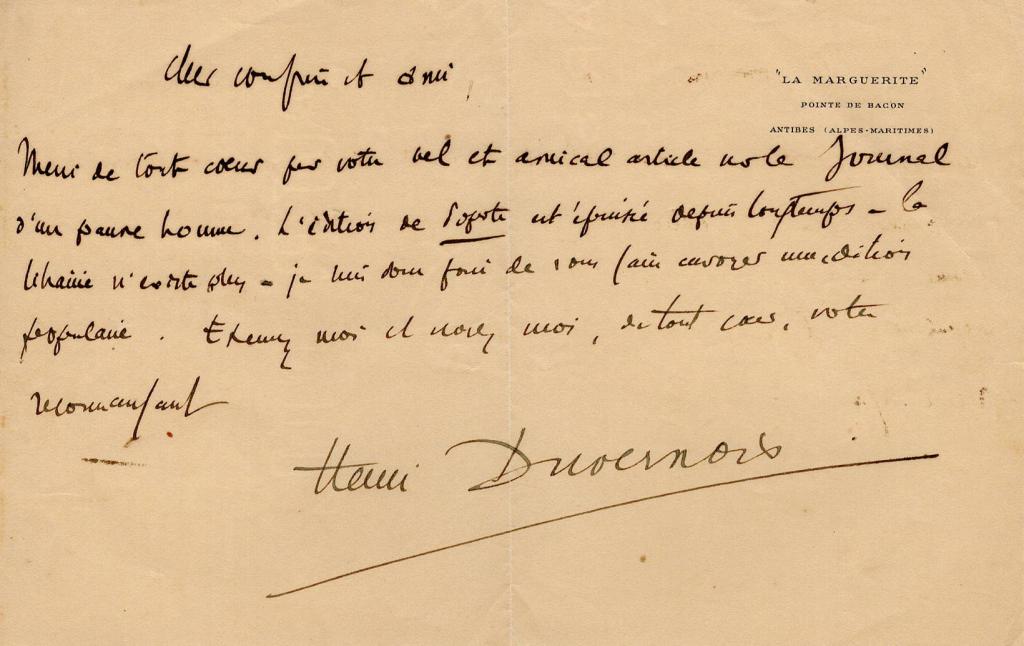 "LA MARGUERITE"
POINTE DE BACON
ANTIBES (ALPES-MARITIMES)
Cher confrère et ami,
Merci de tout cœur pour votre bel et amical article sur le Journal
d'un pauvre homme. L'édition de Popote est épuisée depuis longtemps - la
librairie n'existe plus - je suis donc forcé de vous faire envoyer une édition
populaire. Excusez moi et croyez moi, de tout cœur, votre
reconnaissant
Henri Duvernois